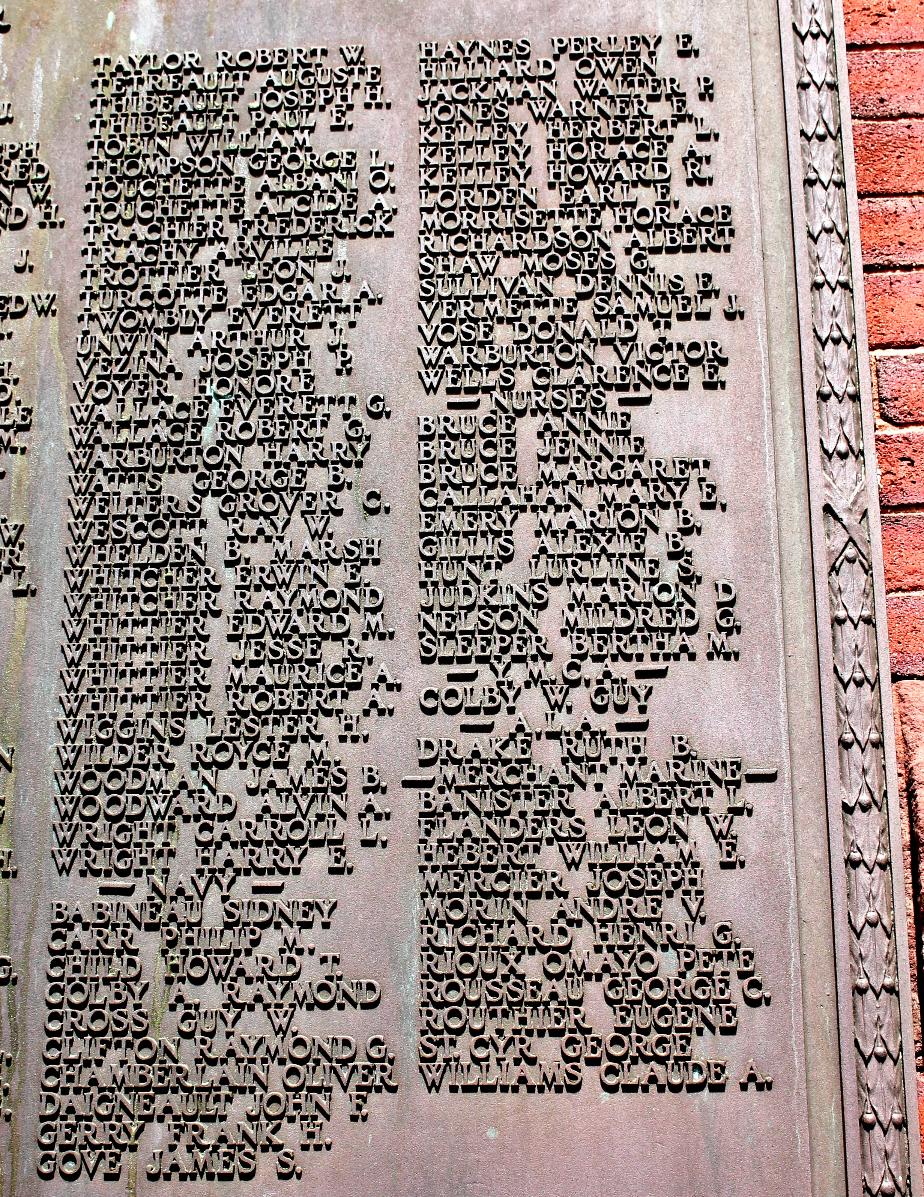 TAYLOR ROBERT W.
TETREAULT AUGUSTE
THIBEAULT JOSEPH H.
THIBEAULT PAUL E.
TOBIN WILLIAM
THOMPSON GEORGE L.
TOUCHETTE ALBANI O.
TOUCHETTE ALCIDE A.
TRACHIER FREDERICK
TRACHY ARVILLE
TROTTIER LEON J.
TURCOTTE EDGAR A.
TWOMBLY EVERETT H.
UNWIN ARTHUR J.
VEZINA JOSEPH P.
VOYER HONORE
WALLACE EVERETT G.
WALLACE ROBERT G.
WARBURTON HARRY
WATTS GEORGE E.
WELTERS GROVER C.
WESCOTT RAY W.
WHELDEN B. MARSH
WHITCHER ERWIN E.
WHITCHER RAYMOND
WHITTIER EDWARD M.
WHITTIER JESSE R.
WHITTIER MAURICE A.
WHITTIER ROBERT A.
WIGGINS LESTER H.
WILDER ROYCE M.
WOODMAN JAMES B.
WOODWARD ALVIN A.
WRIGHT CARROLL L.
WRIGHT HARRY E.
— NAVY —
BABINEAU SIDNEY
CARR PHILIP M.
CHILD HOWARD T.
COLBY A. RAYMOND
CROSS GUY W.
CLIFTON RAYMOND G.
CHAMBERLAIN OLIVER
DAIGNEAULT JOHN F.
GERRY FRANK H.
GOVE JAMES S.
HAYNES PERLEY E.
HILLIARD OWEN
JACKMAN WALTER P.
JONES WARNER E.
KELLEY HERBERT L.
KELLEY HORACE A.
KELLEY HOWARD R.
LORDEN EARL F.
MORRISETTE HORACE
RICHARDSON ALBERT
SHAW MOSES G.
SULLIVAN DENNIS E.
VERMETTE SAMUEL J.
VOSE DONALD T.
WARBURTON VICTOR
WELLS CLARENCE E.
— NURSES —
BRUCE ANNIE
BRUCE JENNIE
BRUCE MARGARET
CALLAHAN MARY E.
EMERY MARION B.
GILLIS ALEXIE B.
HUNT AURLINE S.
JUDKINS MARION D.
NELSON MILDRED G.
SLEEPER BERTHA M.
— Y.M.C.A. —
COLBY W. GUY
— A.L.A. —
DRAKE RUTH B.
— MERCHANT MARINE —
BANISTER ALBERT L.
FLANDERS LEON W.
HEBERT WILLIAM E.
MERCIER JOSEPH
MORIN ANDRE V.
RICHARD HENRY G.
RIOUX OMAYO PETE
ROUSSEAU GEORGE C.
ROUTHIER EUGENE
ST. CYR GEORGE
WILLIAMS CLAUDE A.